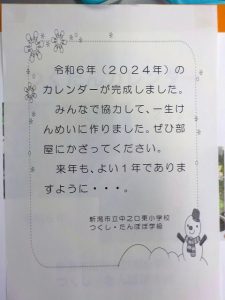 令和６年（２０２４年）の
カレンダーが完成しました。
みんなで協力して、一生け
んめいに作りました。ぜひ部
屋にかざってください。
来年も、よい１年であります
ように・・・。
新潟市立中之口東小学校
つくし・たんぽぽ学級